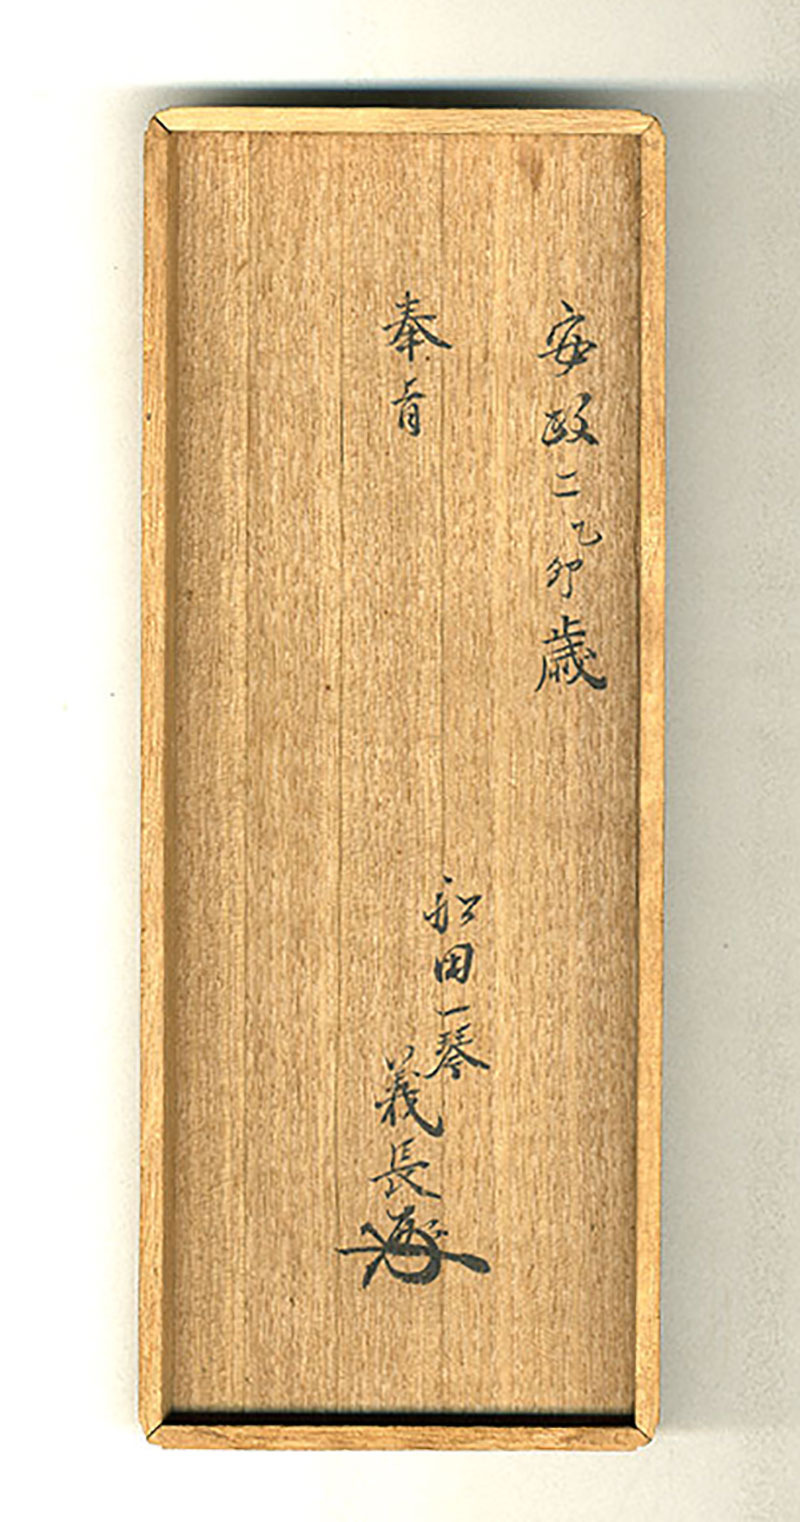 安政二乙卯歳
奉旨
舩田一琴
義長